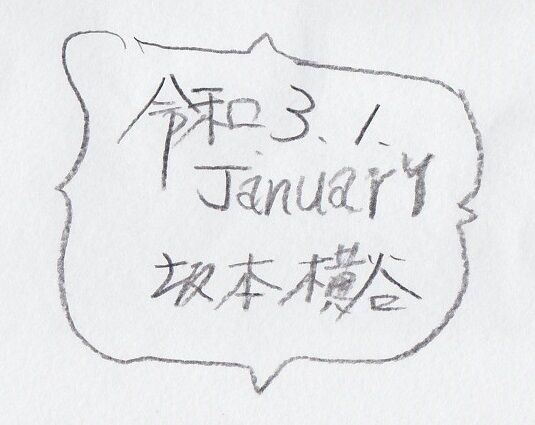 令和3.1.
January
坂本横谷